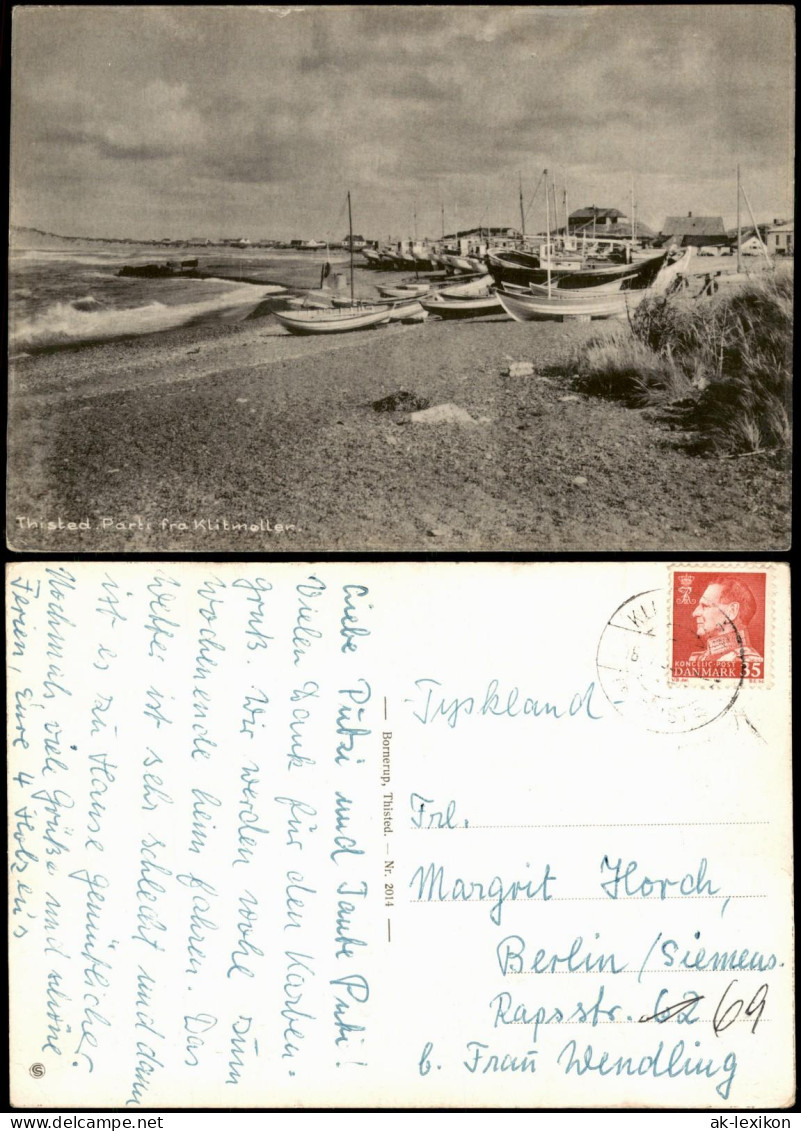 Thisted. Parti fra Klitmøller.
Liebe Putzi und Tante Puti!
Vielen Dank für den Karten=
gruß. Wir werden wohl zum
Wochenende heim fahren. Das
Wetter ist sehr schlecht und dann
ist es zu Hause gemütlicher.
Nochmals, viele Grüße und schöne
Ferien, Eure 4 Holzen's
Bornerup, Thisted. — Nr. 2014
KONGELIG·POST
DANMARK 35
Tyskland
Frl.
Margrit Horch,
Berlin/Siemens.
Rapsstr. 62 69
b. Frau Wendling
ak-lexikon
ak-lexikon.com